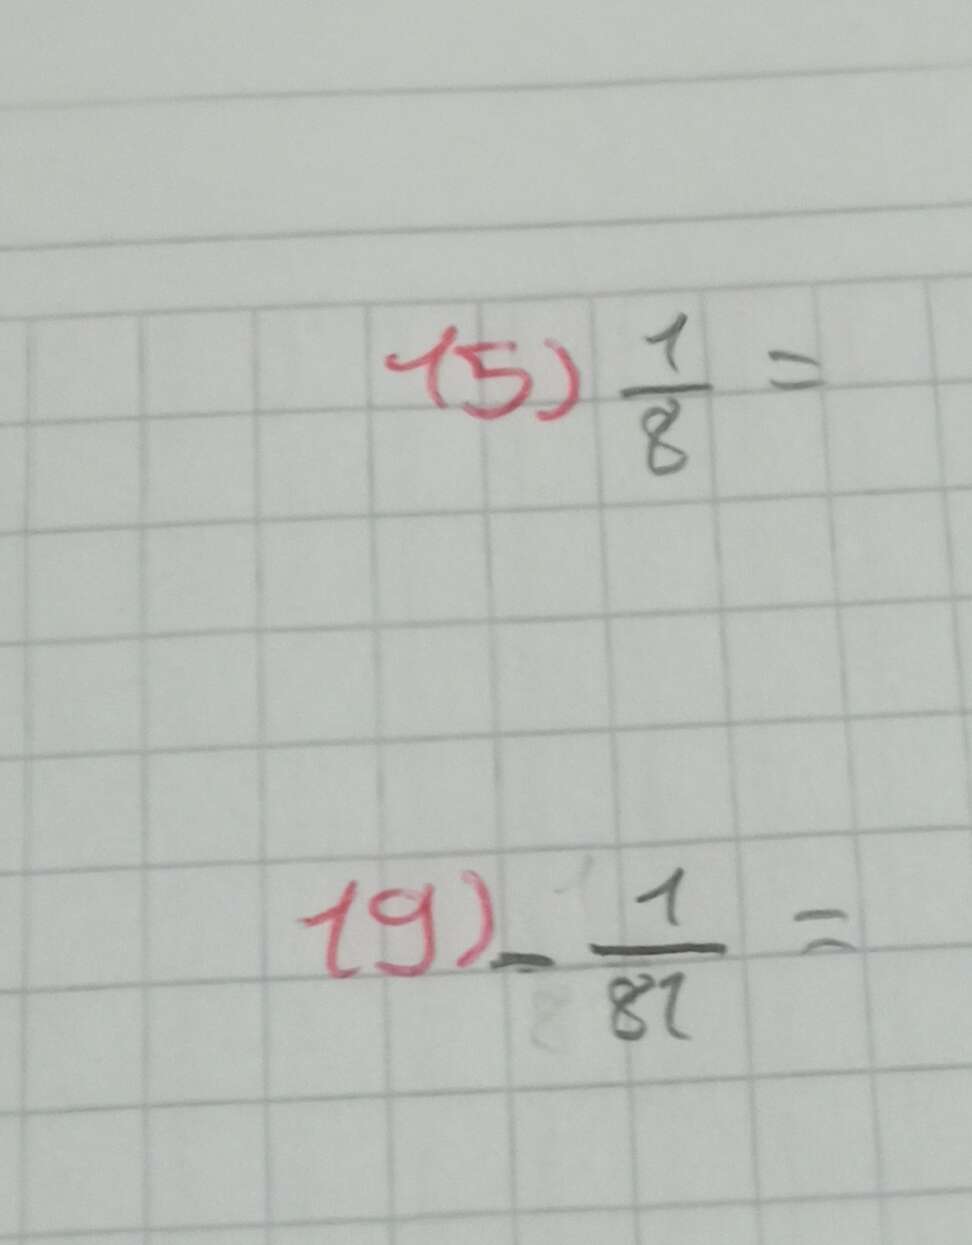 15) 1/8 =
19) - 1/81 =